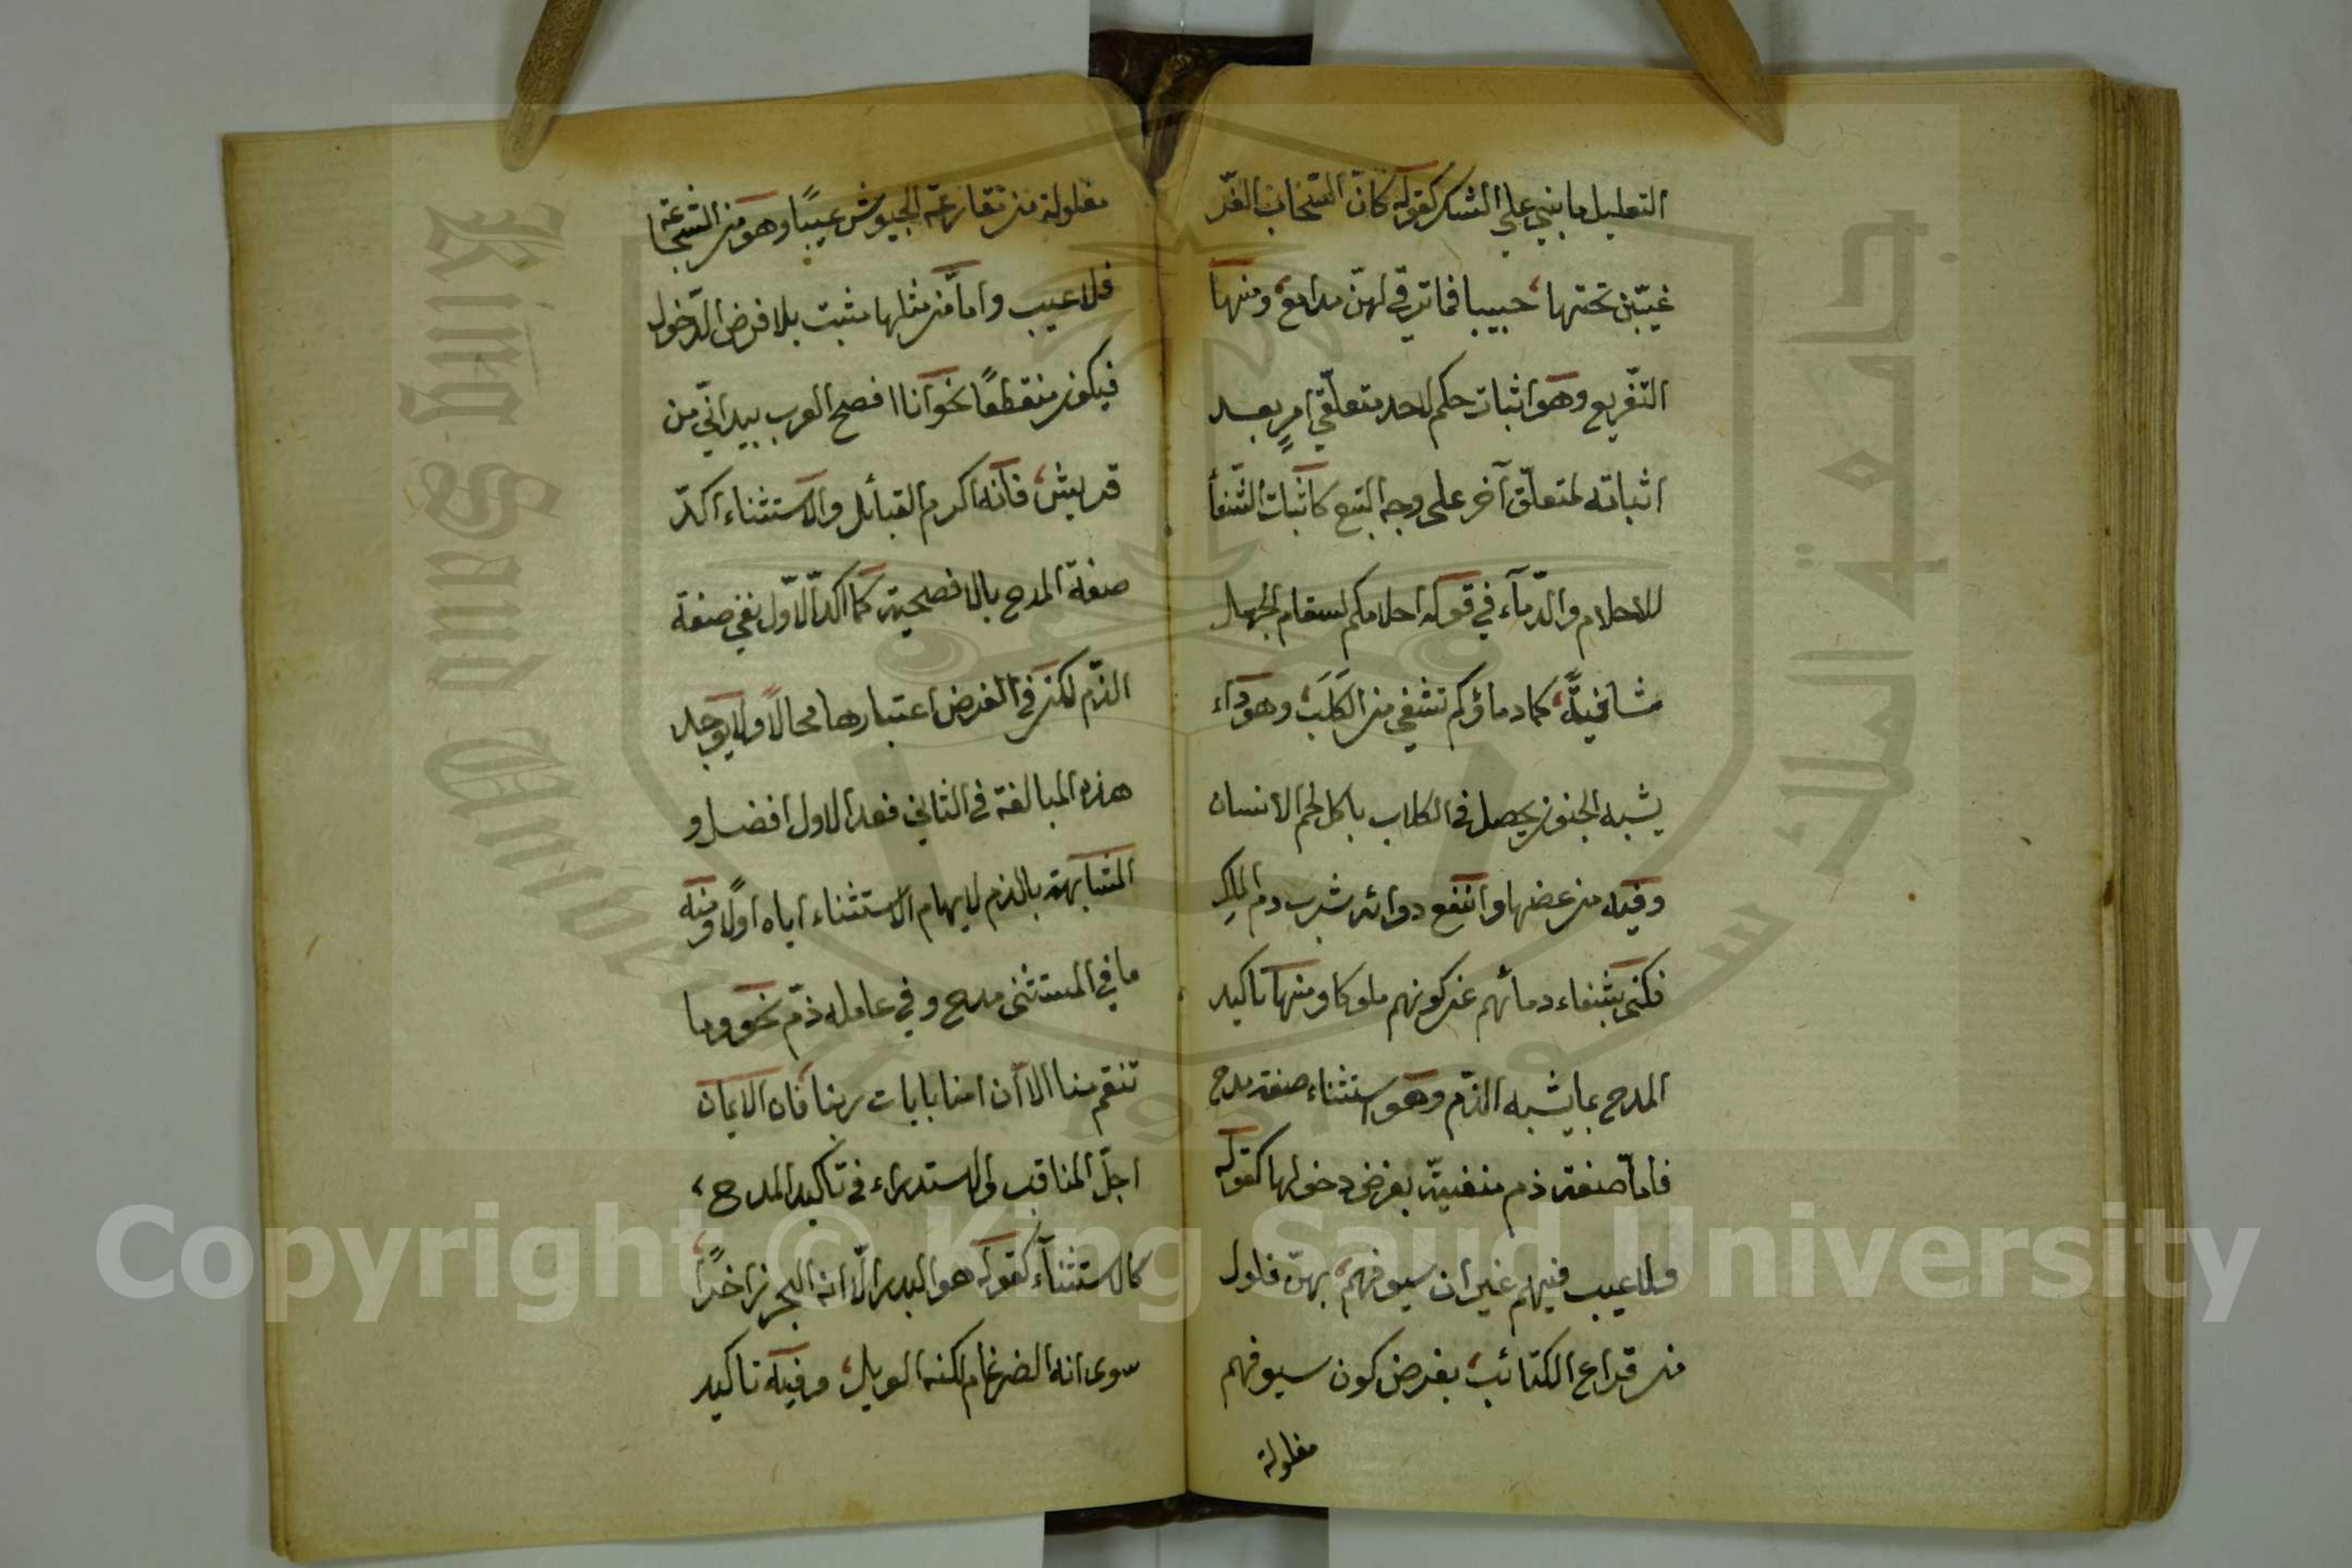 التعليل ما بني على الشك كقوله كانّ السّحاب الغرّ
غيّبن تحتها، حبيبا فما ترقى لهنّ مدامع، ومنها
التّفريع وهو اثبات حكم لاحد متعلّقي امرٍ بعد
اثباته لمتعلّق آخر على وجه التبع كاثبات الشّفاء
للاحلام والدّمآء في قوله احلامكم لسقام الجهل
شافيةٌ، كما دماؤكم تشفي من الكَلَبِ، وهو داء
يشبه الجنون يحصل في الكلاب باكل لحم الانسان
وفيه من عضها وانفع دوائه شرب دم الملك
فكنى بشفاء دمائهم عن كونهم ملوكا ومنها تاكيد
المدح بما يشبه الذّم وهو استثناء صفة مدح
فامّا صفة ذم منفيّة بفرض دخولها كقوله
ولا عيب فيهم غير ان سيوفهم، بهنّ فلول
من قراع الكتائب، بفرض كون سيوفهم
مفلولة
مفلولة من تقارعة الجيوش عيبًا وهو من الشجاعة
فلا عيب وامّا من مثلها مثبت بلا فرض الدّخول
فيكون منقطعًا نحو انا افصح العرب بيد انّي من
قريش، فانه اكرم القبائل والاستثناء اكدّ
صفة المدح بالافصحية كما اكدّ الاوّل نفي صفة
الذّم لكن في الفرض اعتبارها محالًا ولا يوجد
هذه المبالغة في الثاني فعد الاول افضل و
المشابهة بالذم لايهام الاستثناء اياه اولًا ومنه
ما في المستثنى مدح وفي عامله ذمّ نحو وما
تنقم منا الا أن امنا بايات ربنا فان الايمان
اجلّ المناقب والاستدراك في تاكيد المدح،
كالاستثنآء كقوله هو البدر الّا انه البحر زاخرًا،
سوى انه الضرغام لكنه الوبل، وفيه تاكيد
Copyright © King Saud University
King Saud University
جامعة الملك سعود
1957